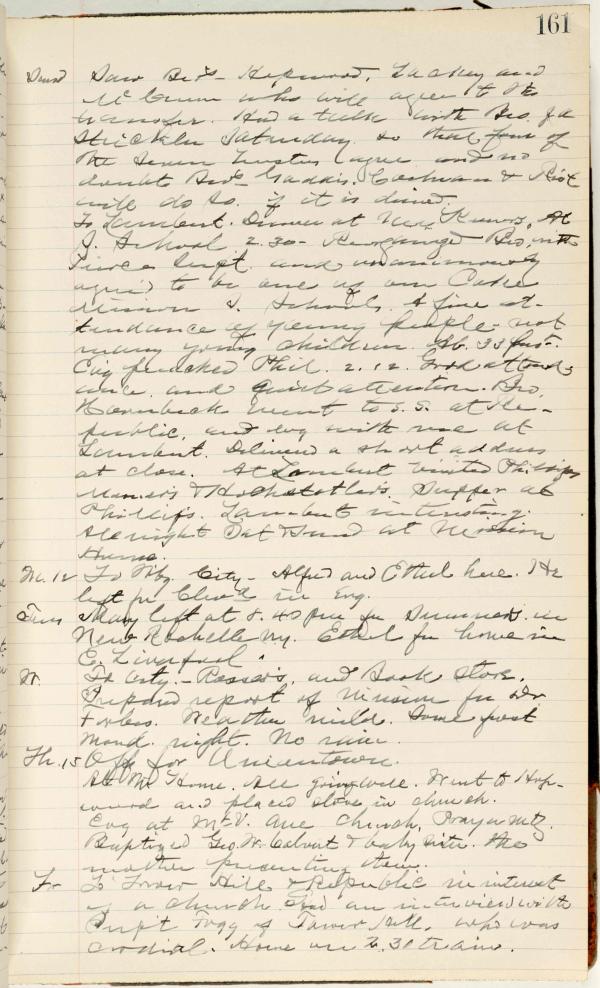 161
Saw Bros - Hopwood, Lackey and
McCunn who will agree to the
transfer. Had a talk with Bro. Ja
Strickler Saturday so that four of
the Seven trustees agree and no
doubt Bros Gaddis, Cochran & Rist
will do so if it is desired.
To Lambert. Dinner at Mrs. At
S. School 2.30 - Reorganized Bro. with
Pierce Supt. and unanimously
agreed to be one of our Coke
Mission S. Schools. A fine at-
tendance of young people - not
many young children. Ab. 33 prst.
Evg preached Phil. 2.12. Good attend-
ance and quiet attention. Bro.
Hornbeck went to S.S. at Re-
public, and evg with me at
Lambert. Delivered a short address
at close. At Lambert visited Phillips
& Hochstetlers. Supper at
Phillips. Lambert interesting.
All night Sat & Sund at Mission
Home.
Mo. 12 To Pbg. City - Alfred and Ethel here. He
left for Cleved in Evg.
Tues Mary left at 8.40 for Summer in
New Rochelle N.Y. Ethel for home in
E. Liverpool.
W. To City. - and Book Store.
Prepared report of Mission for Dr
Forbes. Weather mild. Some frost
Mond. night. No rain.
Th. 15 Off for Uniontown.
At M. Home. All going well. Went to Hop-
wood and placed stove in church.
Evg at McV. Ave Church, Prayer Mtg.
Baptized Geo. W. Calvert & baby sister the
mother presenting them.
Fr To Tower Hill & Republic in interest
of a church. Had an interview with
Supt Fogg of Tower Hill, who was
cordial. Home on 2.30 train.